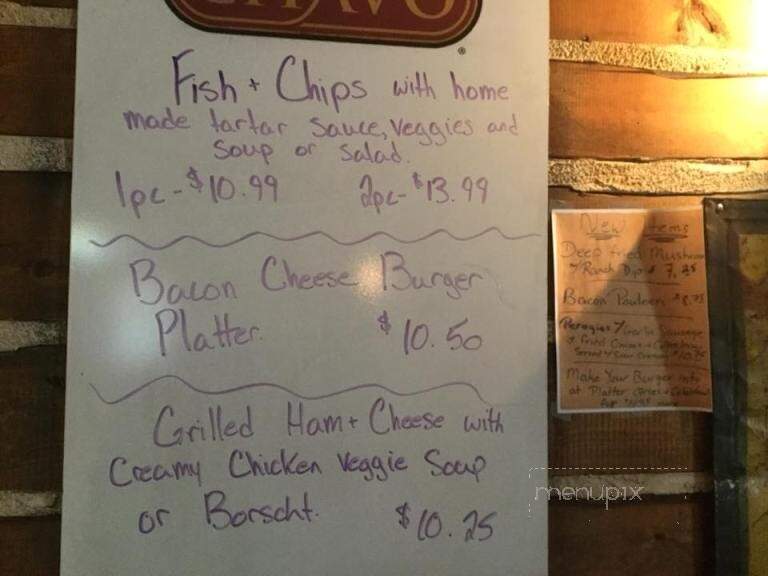 Fish + Chips with home
made tartar sauce, veggies and
soup or salad.
1pc - $10.99 2pc - $13.99
Bacon Cheese Burger
Platter. $10.50
Grilled Ham + Cheese with
Creamy Chicken Veggie Soup
or Borscht. $10.25
New Items
Deep fried Mushroom
Ranch Dip $7.25
Bacon Pouteen $8.75
Perogies Sausage
+ fried Onions +
Make Your Burger into
at Platter
for
menupix